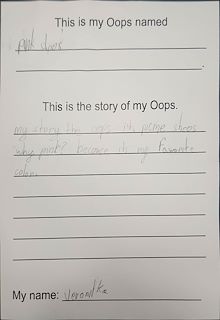 This is my Oops named
pink shoes
This is the story of my Oops.
my story the oops is pisme shoes
why pink? because its my favourite
color
My name: Veronika